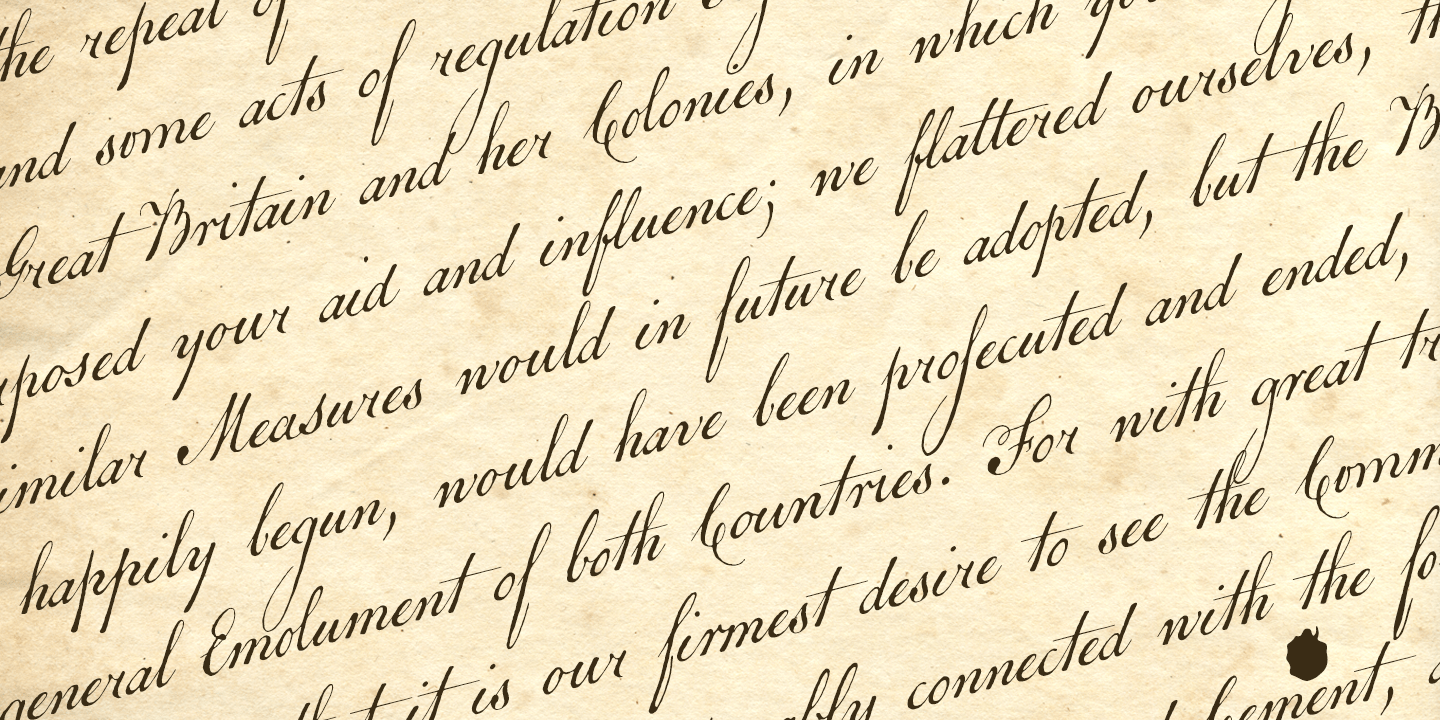 the repeal of
and some acts of regulation
Great Britain and her Colonies, in which
posed your aid and influence; we flattered ourselves,
similar Measures would in future be adopted, but the
happily begun, would have been profecuted and ended,
general Emolument of both Countries. For with great
that it is our firmest desire to see the
connected with the